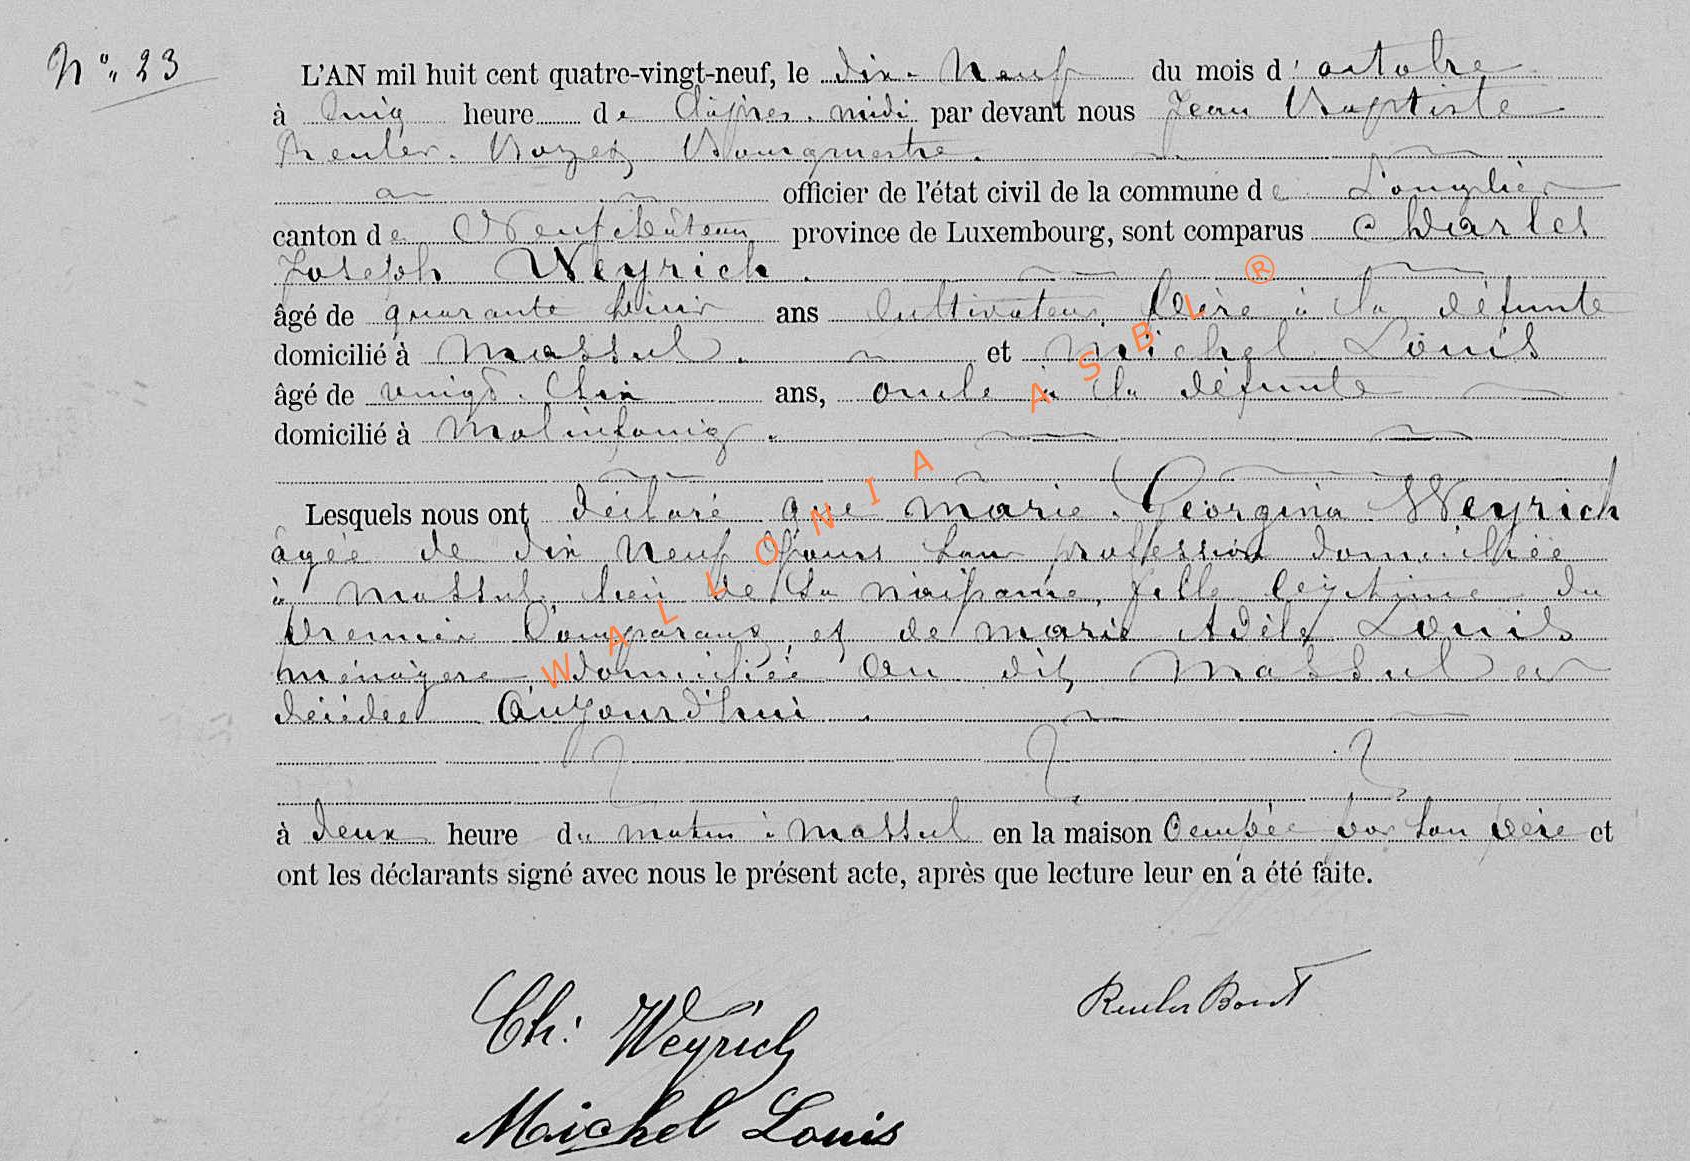 N° 23
L'AN mil huit cent quatre-vingt-neuf, le dix-Neuf du mois d'octobre
à cinq heure de l'après-midi par devant nous Jean Baptiste
Reuler Bourgmestre.
officier de l'état civil de la commune de Longlier
canton de Neufchâteau province de Luxembourg, sont comparus Charles
Joseph Weyrich.
âgé de quarante huit ans Cultivateur, Père à la défunte
domicilié à Massul. et Michel Louis
âgé de vingt-six ans, oncle à la défunte
domicilié à Molinfaing.
Lesquels nous ont déclaré que Marie-Georgina Weyrich
âgée de dix neuf jours sans profession domiciliée
à Massul, lieu de sa naissance, fille légitime du
Premier Comparant et de Marie Adèle Louis
ménagère domiciliée au dit Massul est
décédée Aujourd'hui.
à deux heure du matin à Massul en la maison Occupée par son père et
ont les déclarants signé avec nous le présent acte, après que lecture leur en a été faite.
Ch: Weyrich
Reuler
Michel Louis
WALLONIA ASBL ®